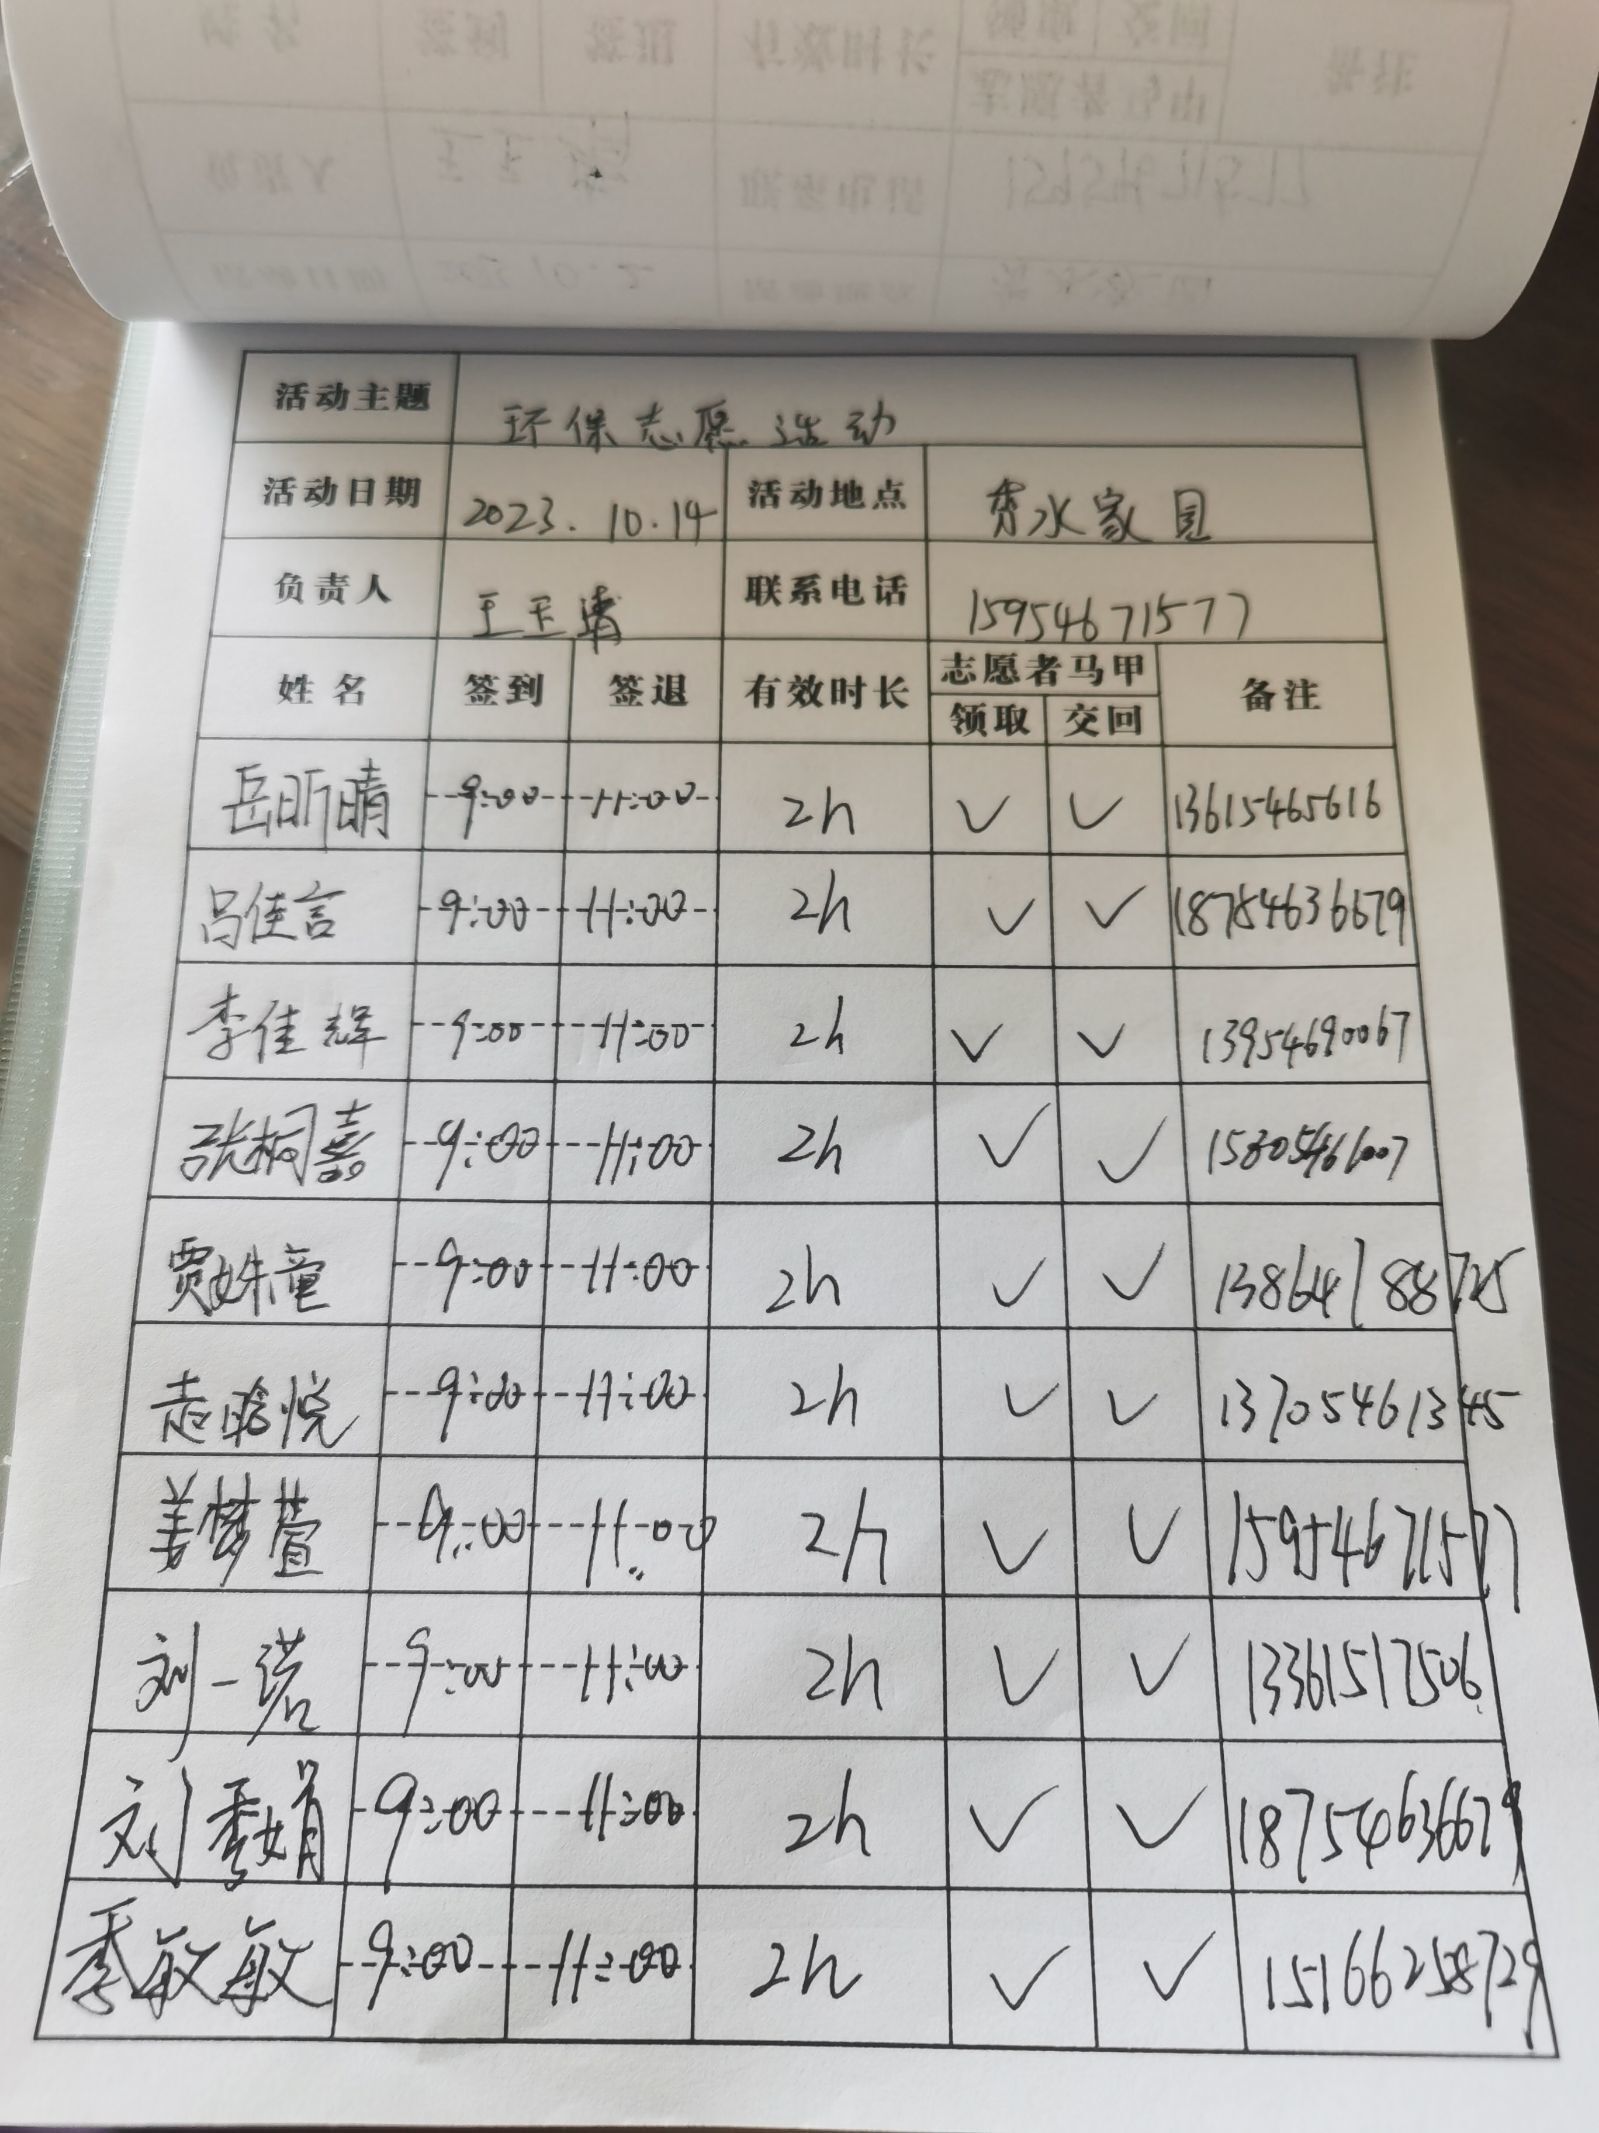 活动主题 环保志愿活动
活动日期 2023.10.14 活动地点 秀水家园
负责人 王玉清 联系电话 15954671577
姓名 签到 签退 有效时长 志愿者马甲 备注
领取 交回
岳昕晴 9:00 11:00 2h ✓ ✓ 13615465616
吕佳言 9:00 11:00 2h ✓ ✓ 18754636679
李佳辉 9:00 11:00 2h ✓ ✓ 13954690067
张桐嘉 9:00 11:00 2h ✓ ✓ 15805461007
贾姝童 9:00 11:00 2h ✓ ✓ 13864188725
赵晗悦 9:00 11:00 2h ✓ ✓ 13705461345
姜梦萱 9:00 11:00 2h ✓ ✓ 15954671577
刘一诺 9:00 11:00 2h ✓ ✓ 13361517506
刘秀娟 9:00 11:00 2h ✓ ✓ 18754636679
季敏敏 9:00 11:00 2h ✓ ✓ 15166258729